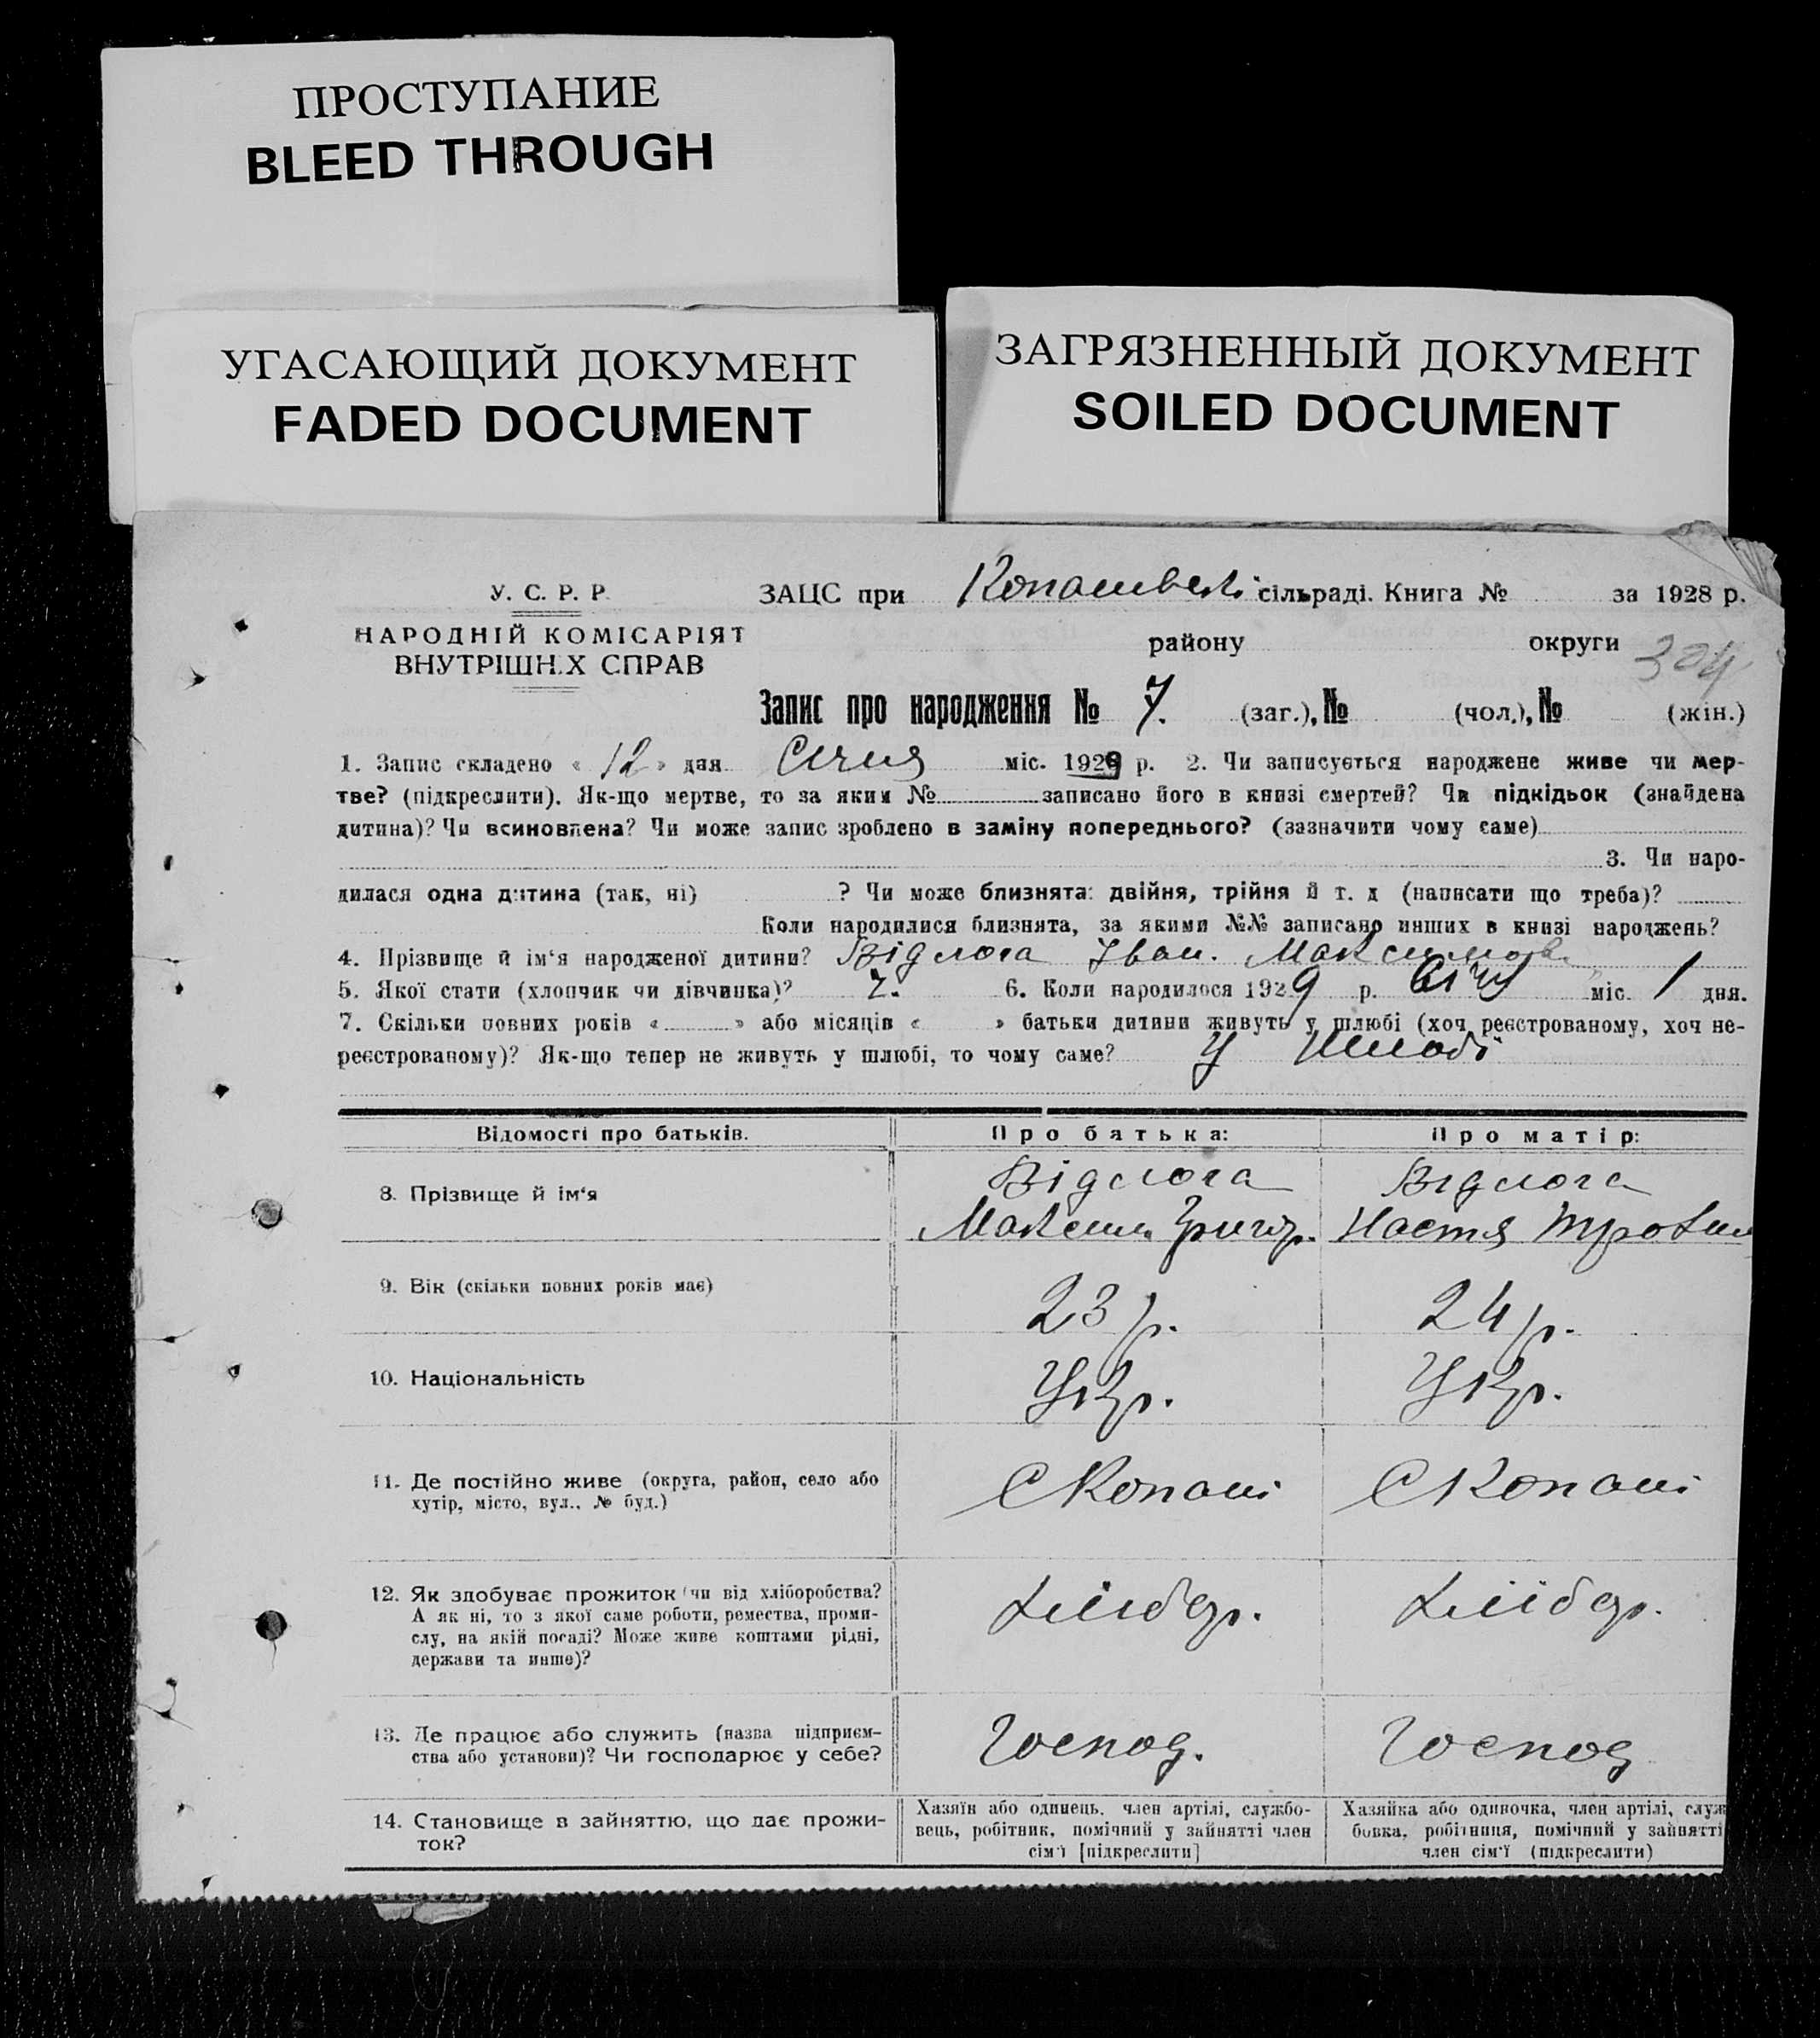 ПРОСТУПАНИЕ
BLEED THROUGH
УГАСАЮЩИЙ ДОКУМЕНТ
FADED DOCUMENT
ЗАГРЯЗНЕННЫЙ ДОКУМЕНТ
SOILED DOCUMENT
У. С. Р. Р.
НАРОДНІЙ КОМІСАРІЯТ
ВНУТРІШНІХ СПРАВ
ЗАЦС при сільраді. Книга № за 1928 р.
району округи
304
Запис про народження № 7. (заг.), № (чол.), № (жін.)
1. Запис складено « 12 » дня Січня міс. 1929 р. 2. Чи записується народжене живе чи мер-
тве? (підкреслити). Як-що мертве, то за яким № записано його в книзі смертей? Чи підкідьок (знайдена
дитина)? Чи всиновлена? Чи може запис зроблено в заміну попереднього? (зазначити чому саме)
3. Чи наро-
дилася одна дитина (так, ні) ? Чи може близнята: двійня, трійня й т. д (написати що треба)?
Коли народилися близнята, за якими №№ записано инших в книзі народжень?
4. Прізвище й ім'я народженої дитини? Відлога Іван.
5. Якої стати (хлопчик чи дівчинка)? 6. Коли народилося 1929 р. Січн міс. 1 дня.
7. Скільки повних років « » або місяців « » батьки дитини живуть у шлюбі (хоч реєстрованому, хоч не-
реєстрованому)? Як-що тепер не живуть у шлюбі, то чому саме? У шлюбі
Відомості про батьків. Про батька: Про матір:
8. Прізвище й ім'я
Відлога
Максим Григор.
Відлога
Настя
9. Вік (скільки повних років має) 23 р. 24 р.
10. Національність Укр. Укр.
11. Де постійно живе (округа, район, село або
хутір, місто, вул., № буд.)
С Копані С Копані
12. Як здобуває прожиток (чи від хліборобства?
А як ні, то з якої саме роботи, ремества, проми-
слу, на якій посаді? Може живе коштами рідні,
держави та инше)?
Хлібор. Хлібор.
13. Де працює або служить (назва підприєм-
ства або установи)? Чи господарює у себе?
Господ. Господ
14. Становище в зайняттю, що дає прожи-
ток?
Хазяїн або одинець, член артілі, службо-
вець, робітник, помічний у зайнятті член
сім'ї [підкреслити]
Хазяйка або одиночка, член артілі, служ
бовка, робітниця, помічний у зайнятті
член сім'ї (підкреслити)